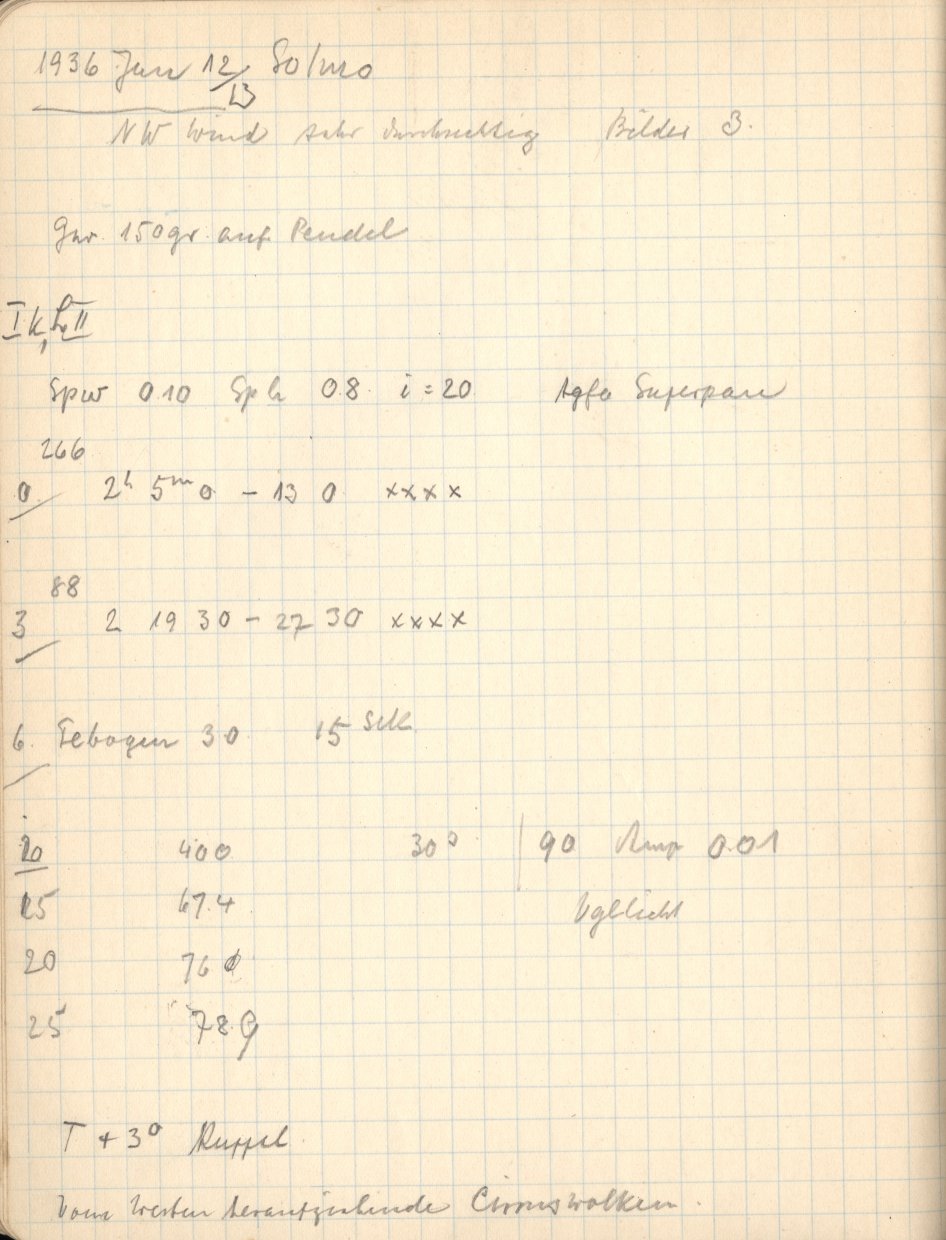 1936 Jan 12/13 So/Mo
NW Wind sehr durchsichtig Bilder 3.
Gew. 150gr. auf Pendel
I K, II
Spw 0.10 Sph 0.8 i = 20 Agfa Superpan
266
0 2h 5m 0 – 13 0 xxxx
88
3 2 19 30 – 27 30 xxxx
6. Febogen 30 15 Sek
10 400 30° | 90 Amp 0.01
15 67.4 Vgllicht
20 76
25 78.9
T + 3° Kuppel
Vom Westen heraufziehende Cirruswolken.